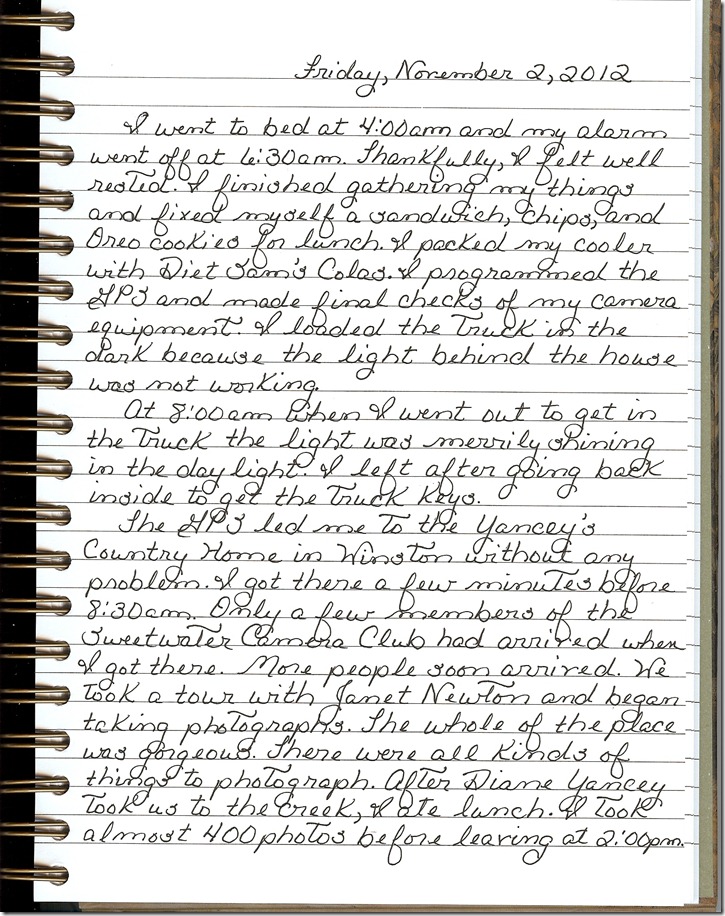 Friday, November 2, 2012
I went to bed at 4:00am and my alarm
went off at 6:30am. Thankfully, I felt well
rested. I finished gathering my things
and fixed myself a sandwich, chips, and
Oreo cookies for lunch. I packed my cooler
with Diet Sam's Colas. I programmed the
GPS and made final checks of my camera
equipment. I loaded the Truck in the
dark because the light behind the house
was not working.
At 8:00am when I went out to get in
the Truck the light was merrily shining
in the daylight. I left after going back
inside to get the Truck Keys.
The GPS led me to the Yancey's
Country Home in Winston without any
problem. I got there a few minutes before
8:30am. Only a few members of the
Sweetwater Camera Club had arrived when
I got there. More people soon arrived. We
took a tour with Janet Newton and began
taking photographs. The whole of the place
was gorgeous. There were all kinds of
things to photograph. After Diane Yancey
took us to the creek, I ate lunch. I took
almost 400 photos before leaving at 2:00pm.